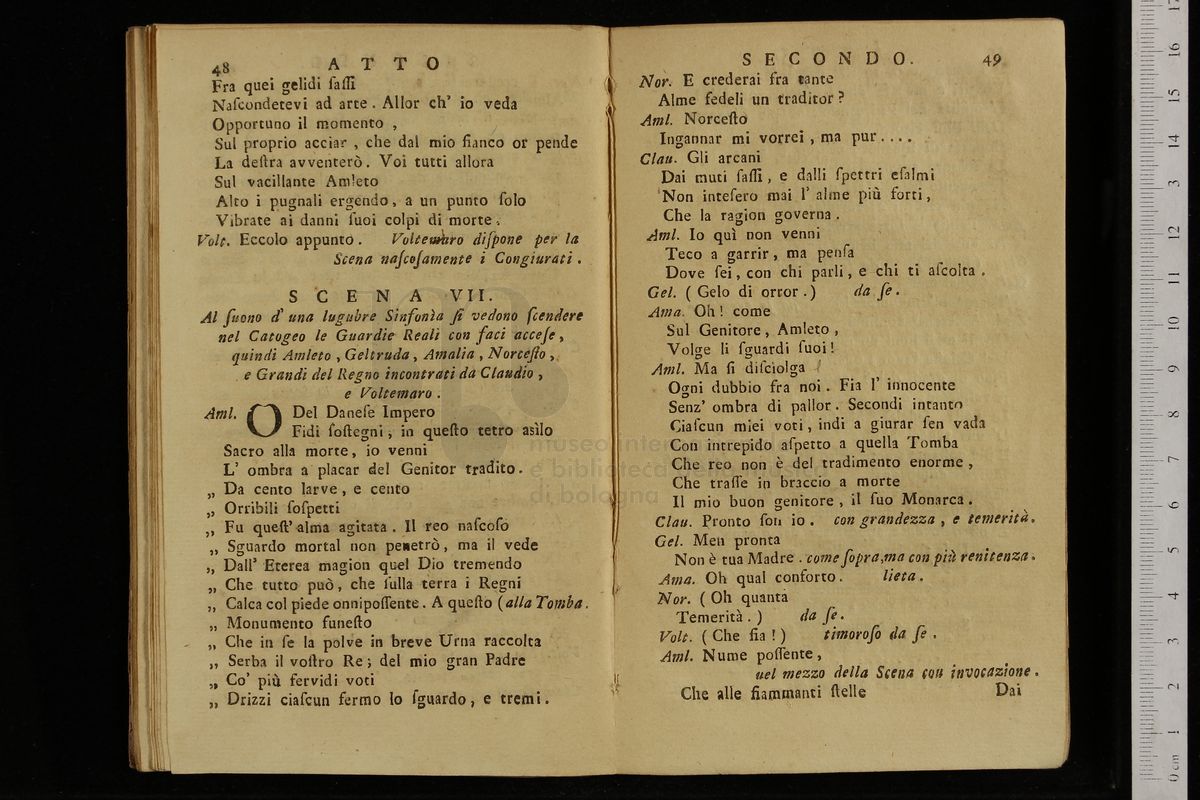 48 ATTO
Fra quei gelidi ſaſſi
Naſcondetevi ad arte . Allor ch' io veda
Opportuno il momento ,
Sul proprio acciar , che dal mio fianco or pende
La deſtra avventerò . Voi tutti allora
Sul vacillante Amleto
Alto i pugnali ergendo , a un punto ſolo
Vibrate ai danni ſuoi colpi di morte .
Volt. Eccolo appunto . Voltemaro diſpone per la
Scena naſcoſamente i Congiurati .
SCENA VII.
Al ſuono d' una lugubre Sinfonìa ſi vedono ſcendere
nel Catogeo le Guardie Reali con faci acceſe ,
quindi Amleto , Geltruda , Amalia , Norceſto ,
e Grandi del Regno incontrati da Claudio ,
e Voltemaro .
Aml. O Del Daneſe Impero
Fidi ſoſtegni , in queſto tetro asìlo
Sacro alla morte , io venni
L' ombra a placar del Genitor tradito .
„ Da cento larve , e cento
„ Orribili ſoſpetti
„ Fu queſt' alma agitata . Il reo naſcoſo
„ Sguardo mortal non penetrò , ma il vede
„ Dall' Eterea magion quel Dio tremendo
„ Che tutto può , che ſulla terra i Regni
„ Calca col piede onnipoſſente . A queſto (alla Tomba .
„ Monumento funeſto
„ Che in ſe la polve in breve Urna raccolta
„ Serba il voſtro Re ; del mio gran Padre
„ Co' più fervidi voti
„ Drizzi ciaſcun fermo lo ſguardo , e tremi .
SECONDO. 49
Nor. E crederai fra tante
Alme fedeli un traditor ?
Aml. Norceſto
Ingannar mi vorrei , ma pur . . . .
Clau. Gli arcani
Dai muti ſaſſi , e dalli ſpettri eſalmi
Non inteſero mai l' alme più forti ,
Che la ragion governa .
Aml. Io quì non venni
Teco a garrir , ma penſa
Dove ſei , con chi parli , e chi ti aſcolta .
Gel. ( Gelo di orror . ) da ſe .
Ama. Oh ! come
Sul Genitore , Amleto ,
Volge li ſguardi ſuoi !
Aml. Ma ſi diſciolga
Ogni dubbio fra noi . Fia l' innocente
Senz' ombra di pallor . Secondi intanto
Ciaſcun miei voti , indi a giurar ſen vada
Con intrepido aſpetto a quella Tomba
Che reo non è del tradimento enorme ,
Che traſſe in braccio a morte
Il mio buon genitore , il ſuo Monarca .
Clau. Pronto ſon io . con grandezza , e temerità .
Gel. Men pronta
Non è tua Madre . come ſopra, ma con più renitenza .
Ama. Oh qual conforto . lieta .
Nor. ( Oh quanta
Temerità . ) da ſe .
Volt. ( Che ſia ! ) timoroſo da ſe .
Aml. Nume poſſente ,
nel mezzo della Scena con invocazione .
Che alle fiammanti ſtelle
Dai
museo internazionale
e biblioteca della musica
di bologna
0 cm 1 2 3 4 5 6 7 8 9 10 11 12 13 14 15 16 17